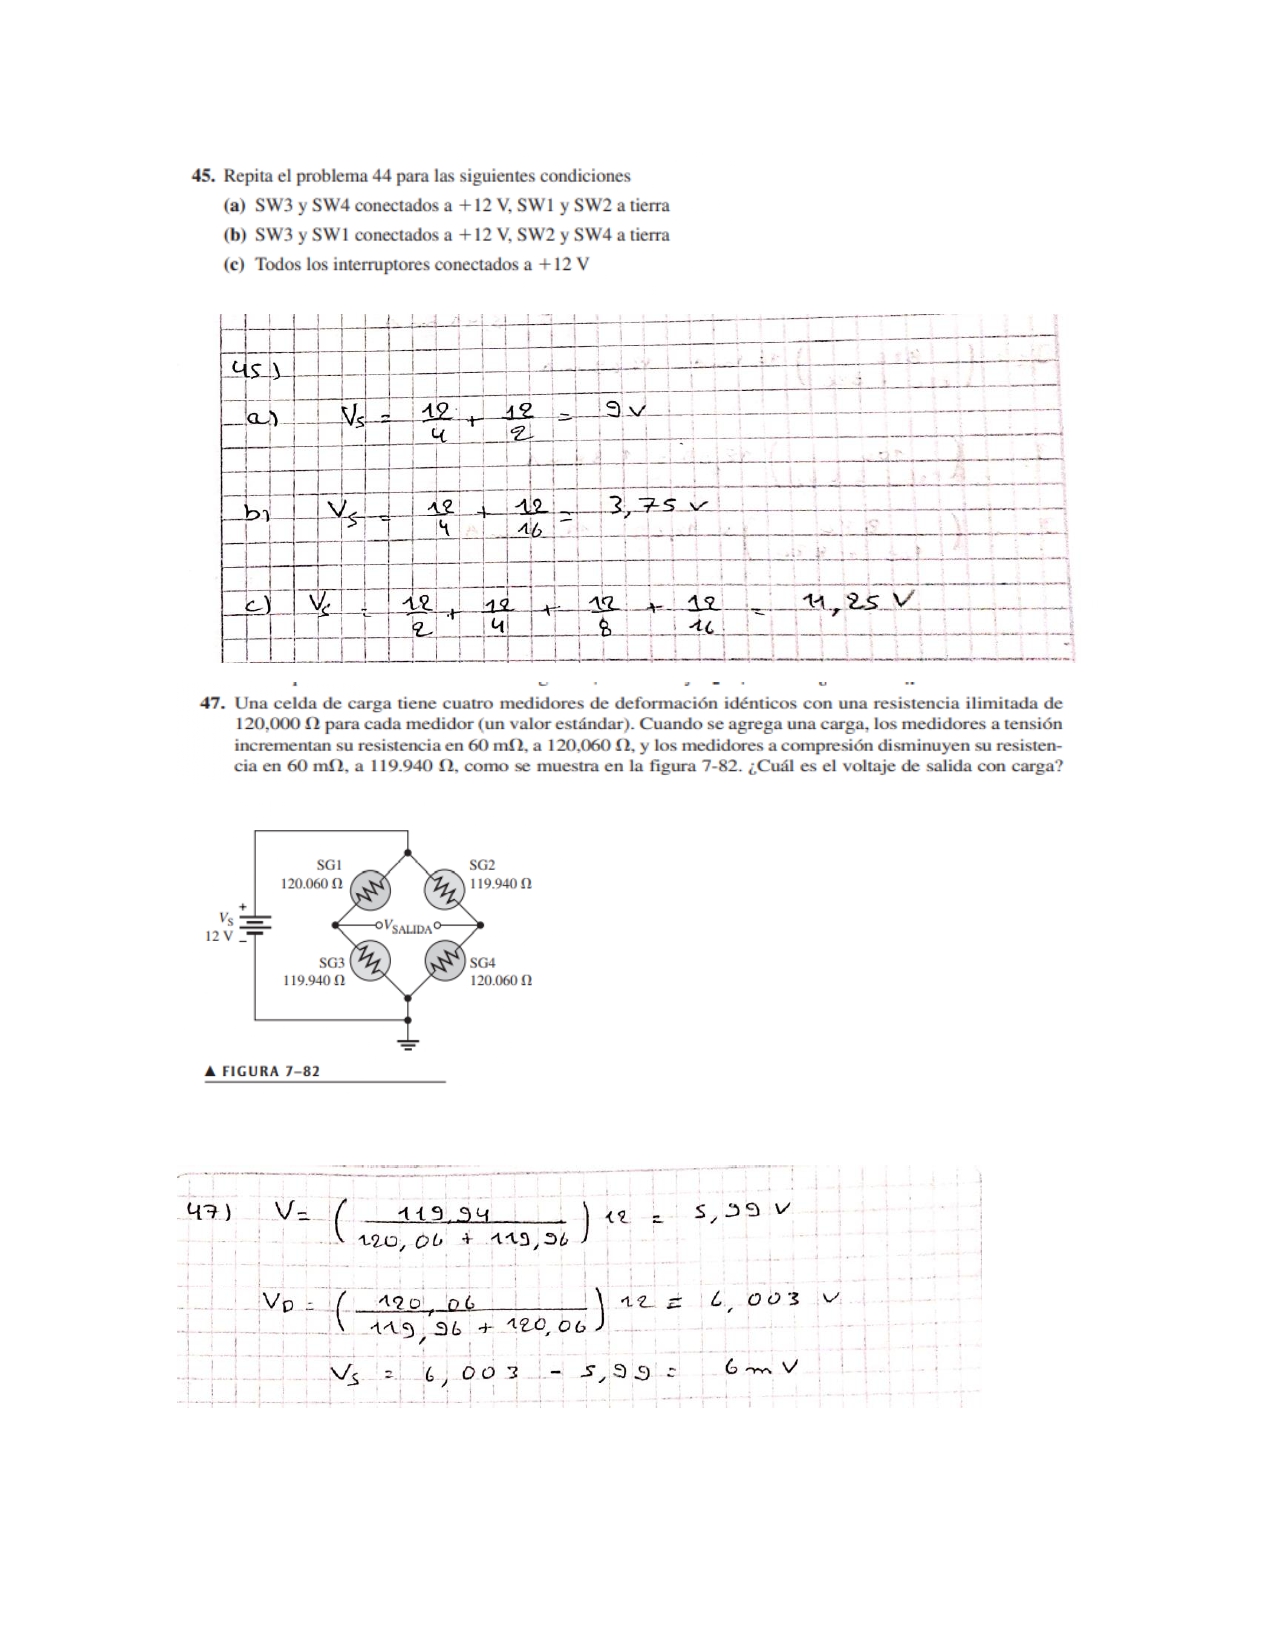 45. Repita el problema 44 para las siguientes condiciones
(a) SW3 y SW4 conectados a +12 V, SW1 y SW2 a tierra
(b) SW3 y SW1 conectados a +12 V, SW2 y SW4 a tierra
(c) Todos los interruptores conectados a +12 V
45)
a) Vs = 12/4 + 12/2 = 9 V
b) Vs = 12/4 + 12/16 = 3,75 V
c) Vs = 12/2 + 12/4 + 12/8 + 12/16 = 11,25 V
47. Una celda de carga tiene cuatro medidores de deformación idénticos con una resistencia ilimitada de
120,000 Ω para cada medidor (un valor estándar). Cuando se agrega una carga, los medidores a tensión
incrementan su resistencia en 60 mΩ, a 120,060 Ω, y los medidores a compresión disminuyen su resisten-
cia en 60 mΩ, a 119.940 Ω, como se muestra en la figura 7-82. ¿Cuál es el voltaje de salida con carga?
SG1
120.060 Ω
SG2
119.940 Ω
+
VS
12 V
−
VSALIDA
SG3
119.940 Ω
SG4
120.060 Ω
▲ FIGURA 7–82
47) V= (119,94 / 120,06 + 119,96) 12 = 5,99 V
VD = (120,06 / 119,96 + 120,06) 12 = 6,003 V
Vs = 6,003 - 5,99 = 6 mV